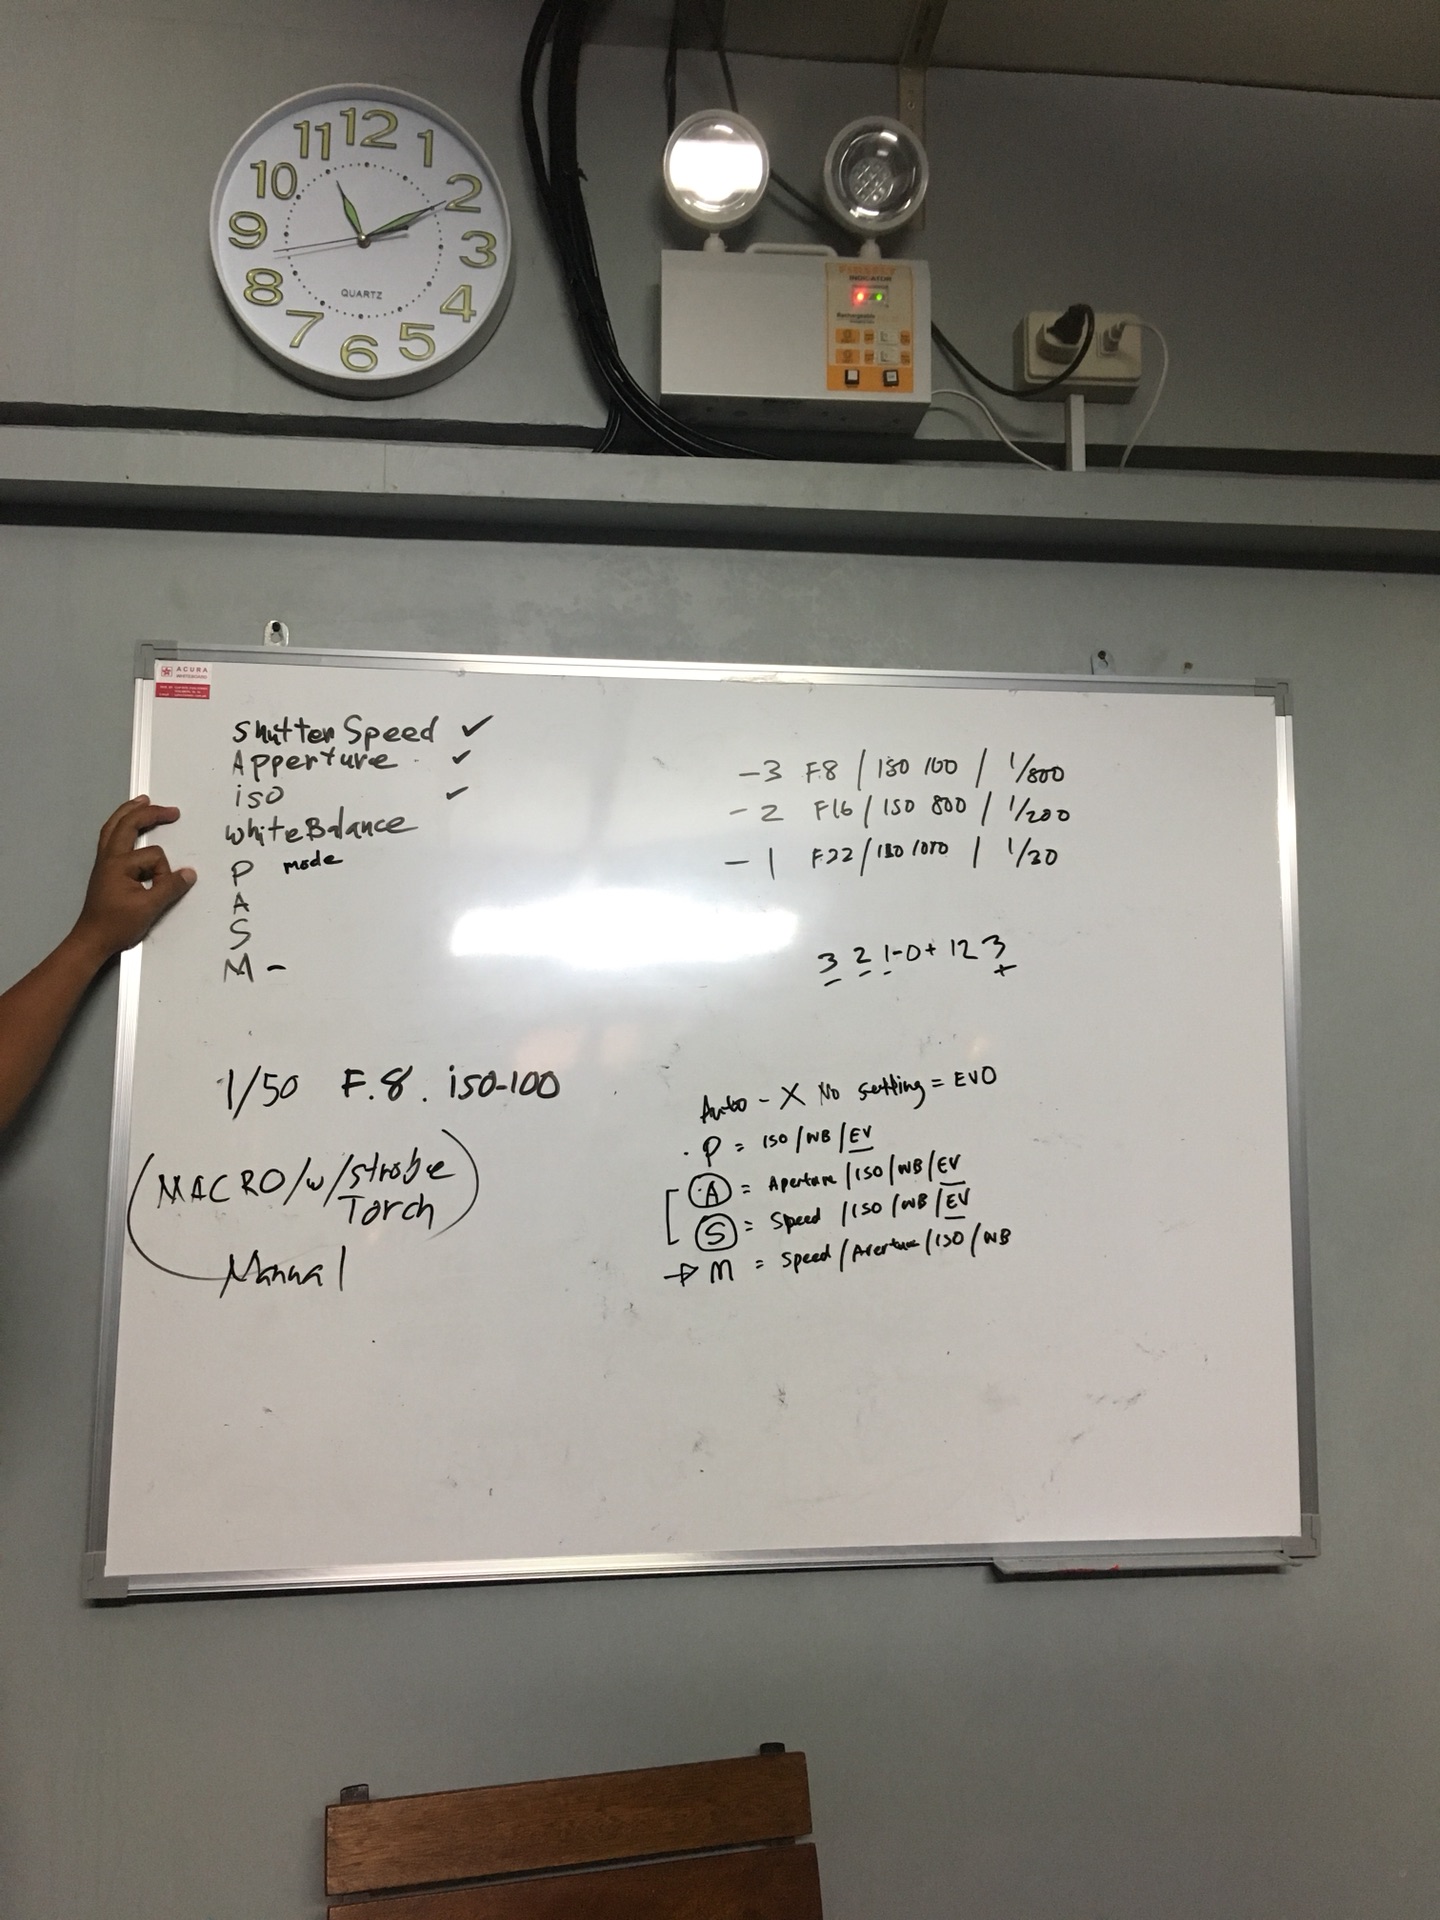 12
1
2
3
4
5
6
7
8
9
10
11
QUARTZ
INDICATOR
Rechargeable
ACURA
WHITEBOARD
Shutter Speed ✓
Apperture ✓
iso ✓
White Balance
P mode
A
S
M -
-3 F.8 / ISO 100 / 1/800
-2 F16 / ISO 800 / 1/200
-1 F.22 / ISO 1000 / 1/30
3 2 1-0+ 1 2 3
- - - +
1/50 F.8. iso-100
(MACRO/w/strobe
Torch)
Manual
Auto - X No setting = EVO
. P = ISO/WB/EV
A = Aperture/ISO/WB/EV
S = Speed /ISO/WB/EV
→ M = Speed/Aperture/ISO/WB